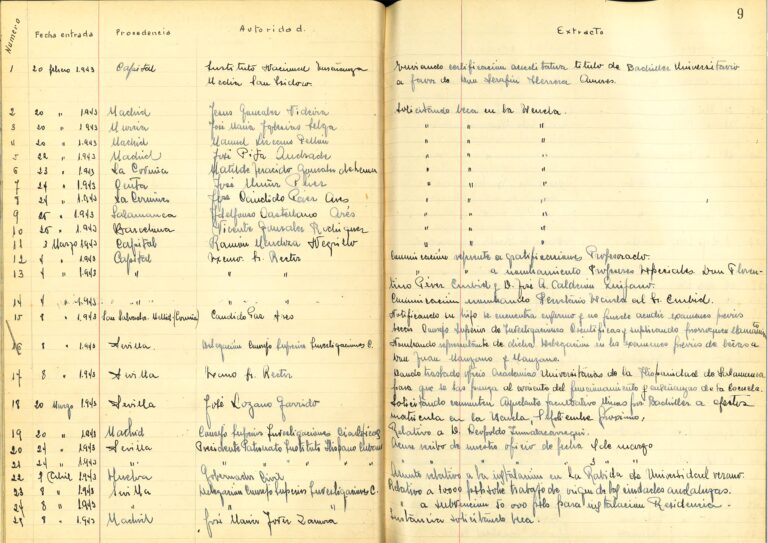 9
Numero Fecha entrada Procedencia Autoridad. Extracto
1 20 febrero 1.943 Capital Instituto Nacional Enseñanza Enviando certificación acreditativa titulo de Bachiller Universitario
Media San Isidoro a favor de Don Serafin Herrera
2 20 " 1.943 Madrid Jesus Gonzalez Solicitando beca en la Escuela.
3 20 " 1.943 Murcia José Maria Iglesias " " "
4 20 " 1.943 Madrid Manuel " " "
5 22 " 1.943 Madrid José Pita Andrade " " "
6 23 " 1.943 La Coruña Matilde Gonzalez " " "
7 24 " 1.943 Ceuta José Muñiz Perez " " "
8 24 " 1.943 La Coruña José Candido Paz Ares " " "
9 25 " 1.943 Salamanca Ildelfonso Castellano Arés " " "
10 25 " 1.943 Barcelona Vicente Gonzalez Rodriguez " " "
11 3 Marzo 1.943 Capital Ramón Mendoza Negrillo " " "
12 4 " 1.943 Capital Excmo Sr. Rector Comunicación referente a gratificaciones Profesorado.
13 4 " 1.943 " " " " a nombramiento Profesores especiales Don Floren-
tino Pérez Embid y D. José A. Calderón Quijano.
14 4 " 1.943 " " " " Comunicación nombrando Secretario Escuela al Sr. Embid.
15 8 " 1.943 (Coruña) Candido Paz Ares Notificando su hijo se encuentra enfermo y no puede acudir examenes previos
beca Consejo Superior de Investigaciones Cientificas y suplicando
16 8 " 1.943 Sevilla Delegación Consejo Superior Investigaciones C. Nombrando representante de dicha Delegación en los examenes previos de becas a
Don Juan Manzano y Manzano.
17 8 " 1.943 Sevilla Excmo Sr. Rector Dando traslado oficio Academias Universitarias de la Hispanidad de Salamanca
para que se las ponga al corriente del funcionamiento y enseñanzas de la Escuela.
18 20 Marzo 1.943 Sevilla José Lozano Garrido Solicitando Ayudante facultativo Minas por Bachiller a efectos
matricula en la Escuela, Septiembre proximo.
19 20 " 1.943 Madrid Consejo Superior Investigaciones Cientificas Relativo a D. Leopoldo Zumalacarregui.
20 24 " 1.943 Sevilla Presidente Patronato Instituto Hispano Cubano Acuse recibo de nuestro oficio de fecha 9 de marzo
21 24 " 1.943 " " " " " " " " " "
22 2 Abril 1.943 Huelva Gobernador Civil Asunto relativo a la instalación en La Rabida de Universidad verano.
23 8 " 1.943 Sevilla Delegación Consejo Superior Investigaciones C. Relativo a 10000 ciudades andaluzas.
24 8 " 1.943 " " " " " a subvencion 50.000 pts para instalacion Residencia.
25 8 " 1.943 Madrid José Maria Jover Zamora Instancia solicitando beca.